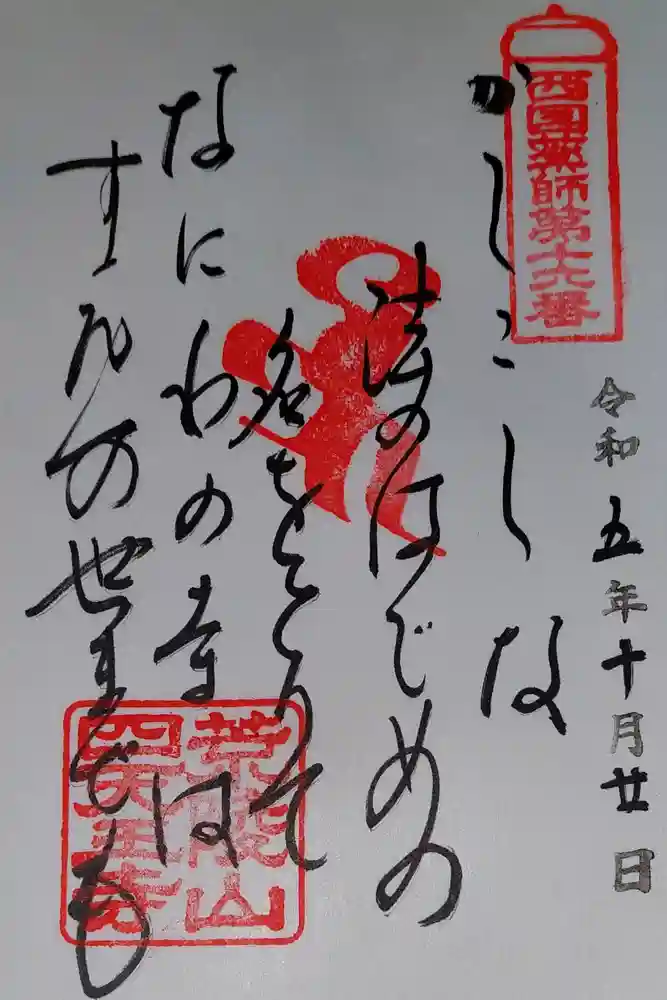 西國薬師第十六番
令和五年十月廿日
かしこしな
法のはじめの
名をとりて
なにわの寺は
すえの世までも
荒陵山
四天王寺